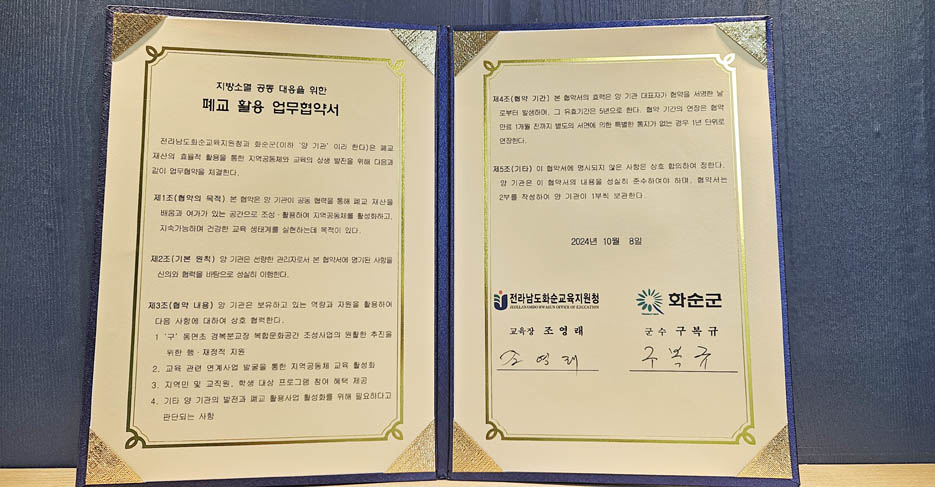 지방소멸 공동 대응을 위한
폐교 활용 업무협약서
전라남도화순교육지원청과 화순군(이하 '양 기관' 이라 한다)은 폐교
재산의 효율적 활용을 통한 지역공동체와 교육의 상생 발전을 위해 다음과
같이 업무협약을 체결한다.
제1조(협약의 목적) 본 협약은 양 기관이 공동 협력을 통해 폐교 재산을
배움과 여가가 있는 공간으로 조성·활용하여 지역공동체를 활성화하고,
지속가능하며 건강한 교육 생태계를 실현하는데 목적이 있다.
제2조(기본 원칙) 양 기관은 선량한 관리자로서 본 협약서에 명기된 사항을
신의와 협력을 바탕으로 성실히 이행한다.
제3조(협약 내용) 양 기관은 보유하고 있는 역량과 자원을 활용하여
다음 사항에 대하여 상호 협력한다.
1 '구' 동면초 경복분교장 복합문화공간 조성사업의 원활한 추진을
위한 행·재정적 지원
2. 교육 관련 연계사업 발굴을 통한 지역공동체 교육 활성화
3. 지역민 및 교직원, 학생 대상 프로그램 참여 혜택 제공
4. 기타 양 기관의 발전과 폐교 활용사업 활성화를 위해 필요하다고
판단되는 사항
제4조(협약 기간) 본 협약서의 효력은 양 기관 대표자가 협약을 서명한 날
로부터 발생하며, 그 유효기간은 5년으로 한다. 협약 기간의 연장은 협약
만료 1개월 전까지 별도의 서면에 의한 특별한 통지가 없는 경우 1년 단위로
연장한다.
제5조(기타) 이 협약서에 명시되지 않은 사항은 상호 합의하여 정한다.
양 기관은 이 협약서의 내용을 성실히 준수하여야 하며, 협약서는
2부를 작성하여 양 기관이 1부씩 보관한다.
2024년 10월 8일
전라남도화순교육지원청
JEOLLANAMDO HWASUN OFFICE OF EDUCATION
화순군
교육장 조영래
군수 구복규
조영래
구복규